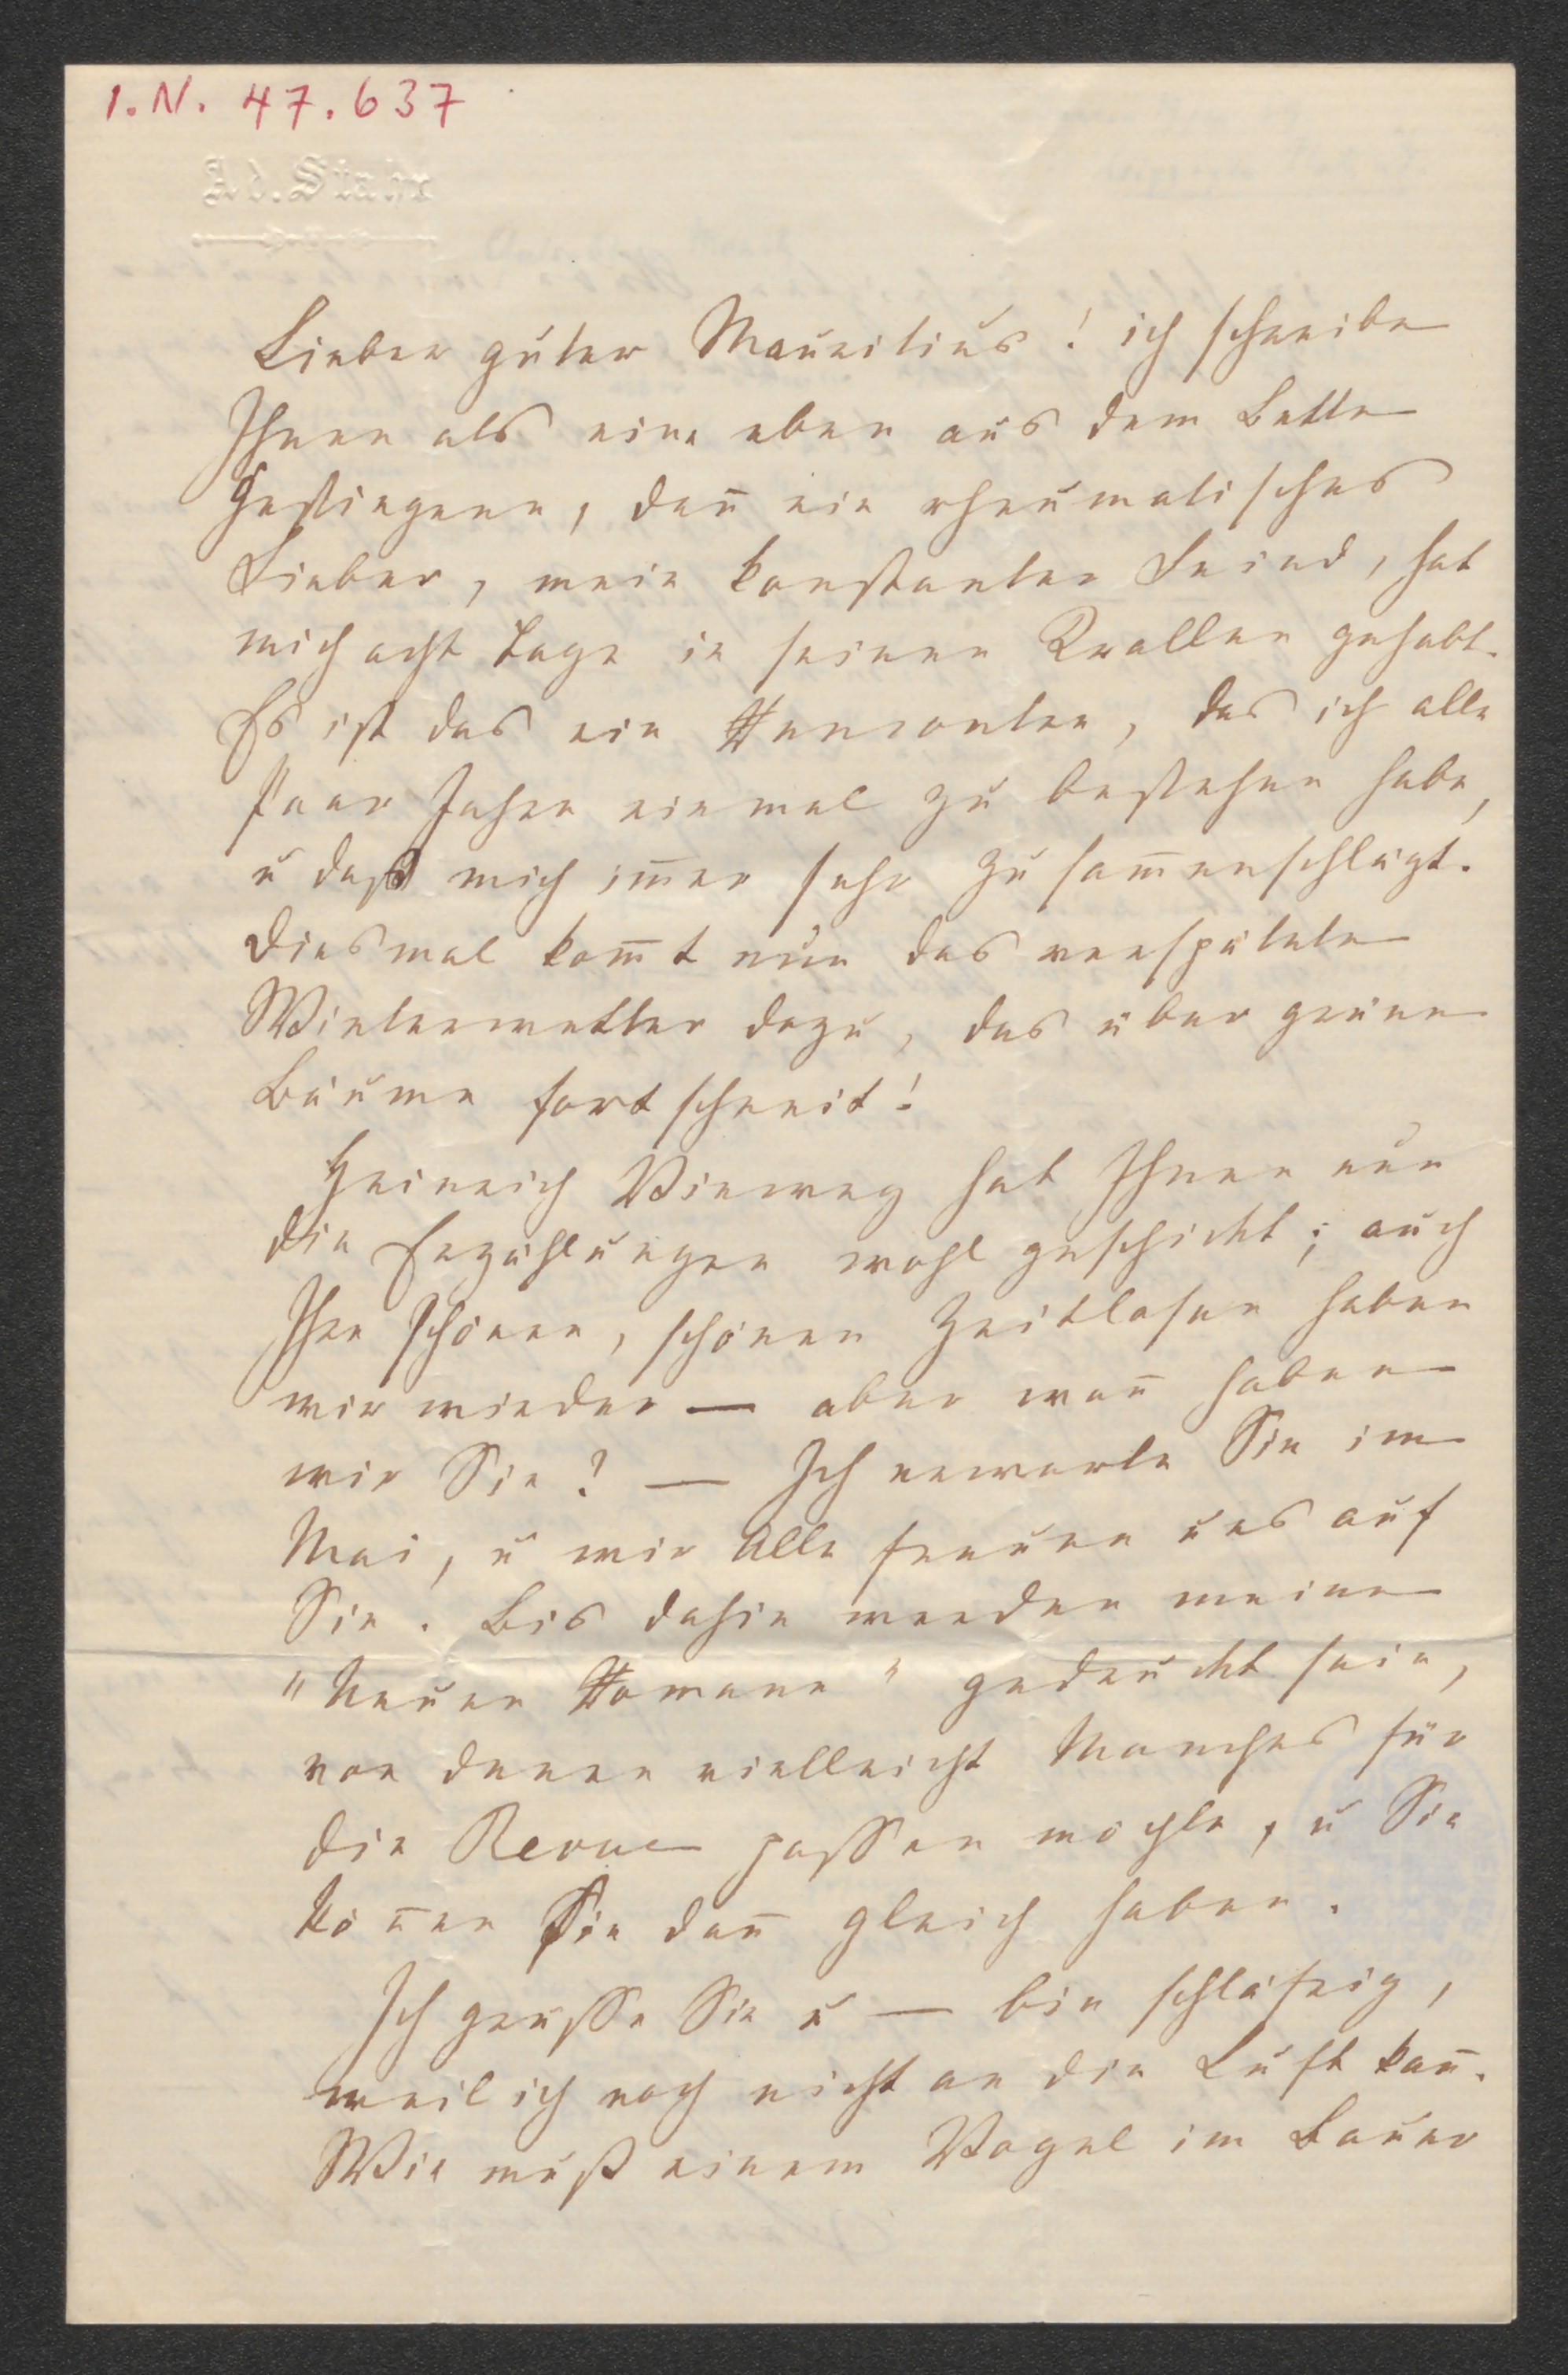 I.N. 47.637
Ad. Stahr
Lieber guter Mauritius! ich schreibe
Ihnen als eine eben aus dem Bette
Gestiegene, den̅ ein rheumatisches
Fieber, mein konstanter Feind, hat
mich acht Tage in seinen Krallen gehabt.
Es ist das ein Rencontre, das ich alle
Paar Jahre einmal zu bestehen habe,
u daß mich im̅er sehr zusam̅enschlägt.
Diesmal kom̅t nun das verspätete
Winterwetter dazu, das über grüne
Bäume fortschneit!
Heinrich Vieweg hat Ihnen nun
die Erzählungen wohl geschickt; auch
Ihre schönen, schönen Zeitlosen haben
wir wieder — aber wan̅ haben
wir Sie? — Ich erwarte Sie im
Mai, u wir Alle freuen uns auf
Sie. Bis dahin werden meine
"Neuen Romane" gedruckt sein,
von denen vielleicht Manches für
die Revue passen möchte, u Sie
kön̅en Sie dan̅ gleich haben.
Ich grüsse Sie u — bin schläfrig,
weil ich noch nicht an die Luft kan̅.
Wie muß einem Vogel im Bauer